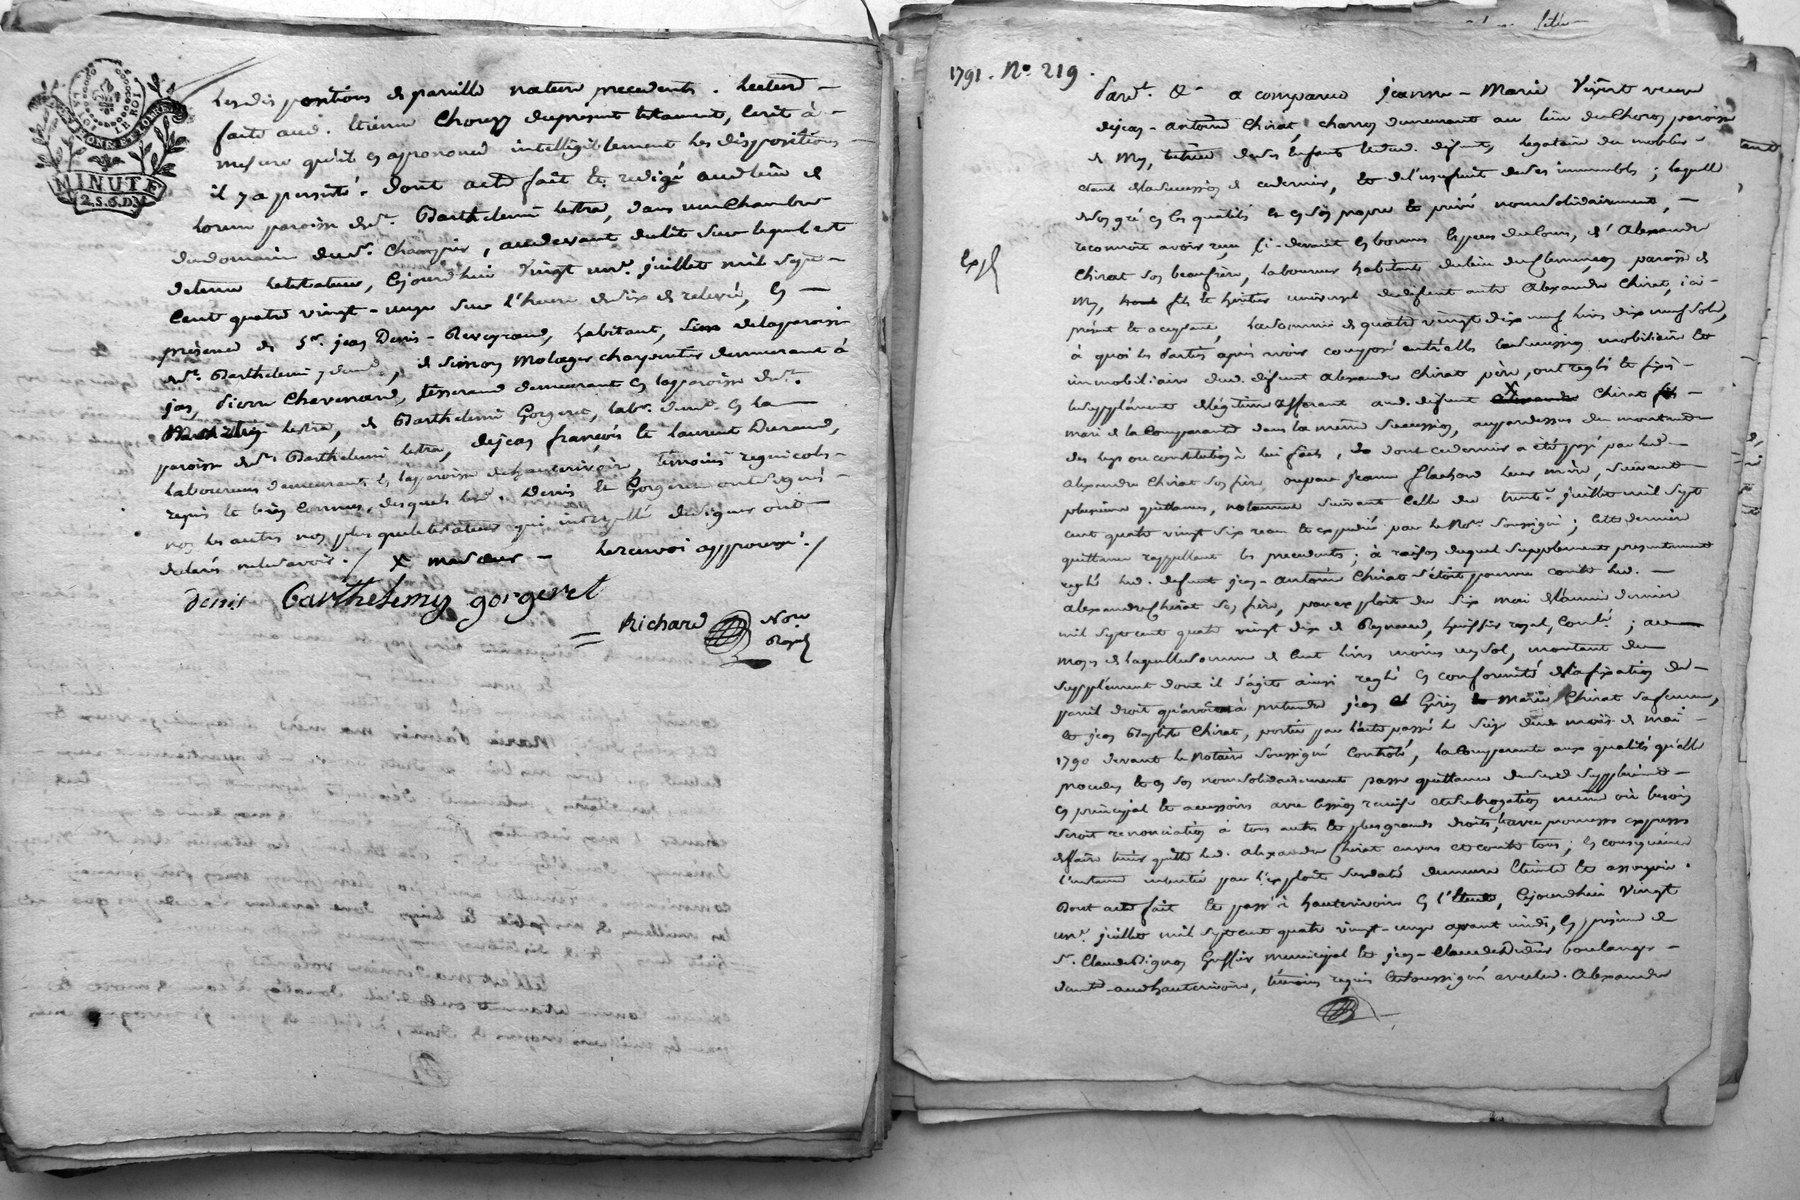 LA LOI ET LE ROI
MINUTE
2. S. 6. D.
les dispositions de pareille nature precedents. Lecture
faite aud. Etienne Chouzy du present testament, Ecrit à
mesure qu'il en a prononcé intelligiblement les dispositions
il y a persisté. Dont acte fait et redigé audit lieu de
paroisse de St. Barthelemi lestra, dans une chambre
du domaine du Sr. Champier, audevant du lit sur lequel est
detenu le testateur, Cejourd'hui vingt un. juillet mil sept
Cent quatre vingt-onze sur l'heure de six de relevée, En
présence de Sr. jean Denis habitant, de la paroisse
de St. Barthelemi y demt., de Simon charpentier demeurant à
jas, Pierre Chavenand, tisserand demeurant en la paroisse de St.
Barthelemi lestra, de Barthelemi Gorgeret, labr. demt. En la
paroisse de St. Barthelemi lestra, de jean françois et laurent Durand,
laboureurs demeurants En la paroisse de hauterivoire, temoins regnicols
requis et bien connus, desquels led. Denis et Gorgeret ont signés
non les autres non plus que le testateur qui interpellé de signer ont
declarés ne le savoir. / X ma soeur - le renvoi approuvé. /
denis Barthelemy gorgeret
Richard Nore Royal
1791. No. 219.
Pard. &. a comparue jeanne-Marie veuve
de jean-antoine Chirat, charron demeurant au lieu du paroisse
de My, tutrice de ses Enfants et dud. défunt, legataire du mobilier
étant de la succession de ce dernier, et de l'usufruit de ses immeubles; laquelle
de son gré en les qualités et en son propre et privé nom solidairement,
reconnoit avoir reçu ci-devant en bonnes Especes de cours, d'Alexandre
Chirat son beaufrère, laboureur habitant du lieu de paroisse de
My, fils et heritier universel de defunt autre Alexandre Chirat, ici
présent et acceptant, la somme de quatre vingt dix neuf livres dix neuf sols,
à quoi les Parties après avoir composé entr'elles la succession mobiliaire et
immobiliaire dud. défunt Alexandre Chirat père, ont reglé et fixé
le supplément de légitime afferant aud. défunt X Chirat
mari de la Comparante dans la même succession, au pardessus du montant
des legs ou constitution à lui faits, & dont ce dernier a été payé par led.
Alexandre Chirat son frère, ou par jeanne flachard leur mère, suivant
plusieurs quittances, notamment suivant celle du trente juillet mil sept
cent quatre vingt six reçue et expédiée par le Nore. soussigné; cette derniere
quittance rappellant les precedents; à raison duquel supplement presentement
reglé led. defunt jean-Antoine Chirat s'étoit pourvu contre led.
Alexandre Chirat son frère, par exploit du six mai de l'année derniere
mil sept cent quatre vingt dix de Reynaud, huissier royal, Contlé.; au
moyen de laquelle somme de Cent livres moins un sol, montant du
supplément dont il s'agit ainsi reglé en conformité de la fixation de
pareil droit qu'avoient à pretendre jean et Marie Chirat sa femme,
et jean Baptiste Chirat, portée par l'acte passé le Seize dud. mois de mai
1790 devant le Notaire Soussigné Contrôlé, la Comparante aux qualités qu'elle
procede et en son nom solidairement passe quittance dud. supplément
En principal et accessoirs avec cession remise et subrogation même où besoin
seroit renonciation à tous autres et plus grands droits, et avec promesse expresse
de faire tenir quitte led. Alexandre Chirat envers et contre tous; En consequence
l'instance intentée par l'exploit susdaté demeure éteinte et assoupie.
Dont acte fait Et passé à hauterivoire En l'Etude, Cejourd'hui Vingt
un. juillet mil sept cent quatre vingt-onze avant midi, En présence de
Sr. Claude Greffier municipal et jean-Claude Didier boulanger
demt. aud hauterivoire, témoins requis et soussignés avec led. Alexandre
Exp